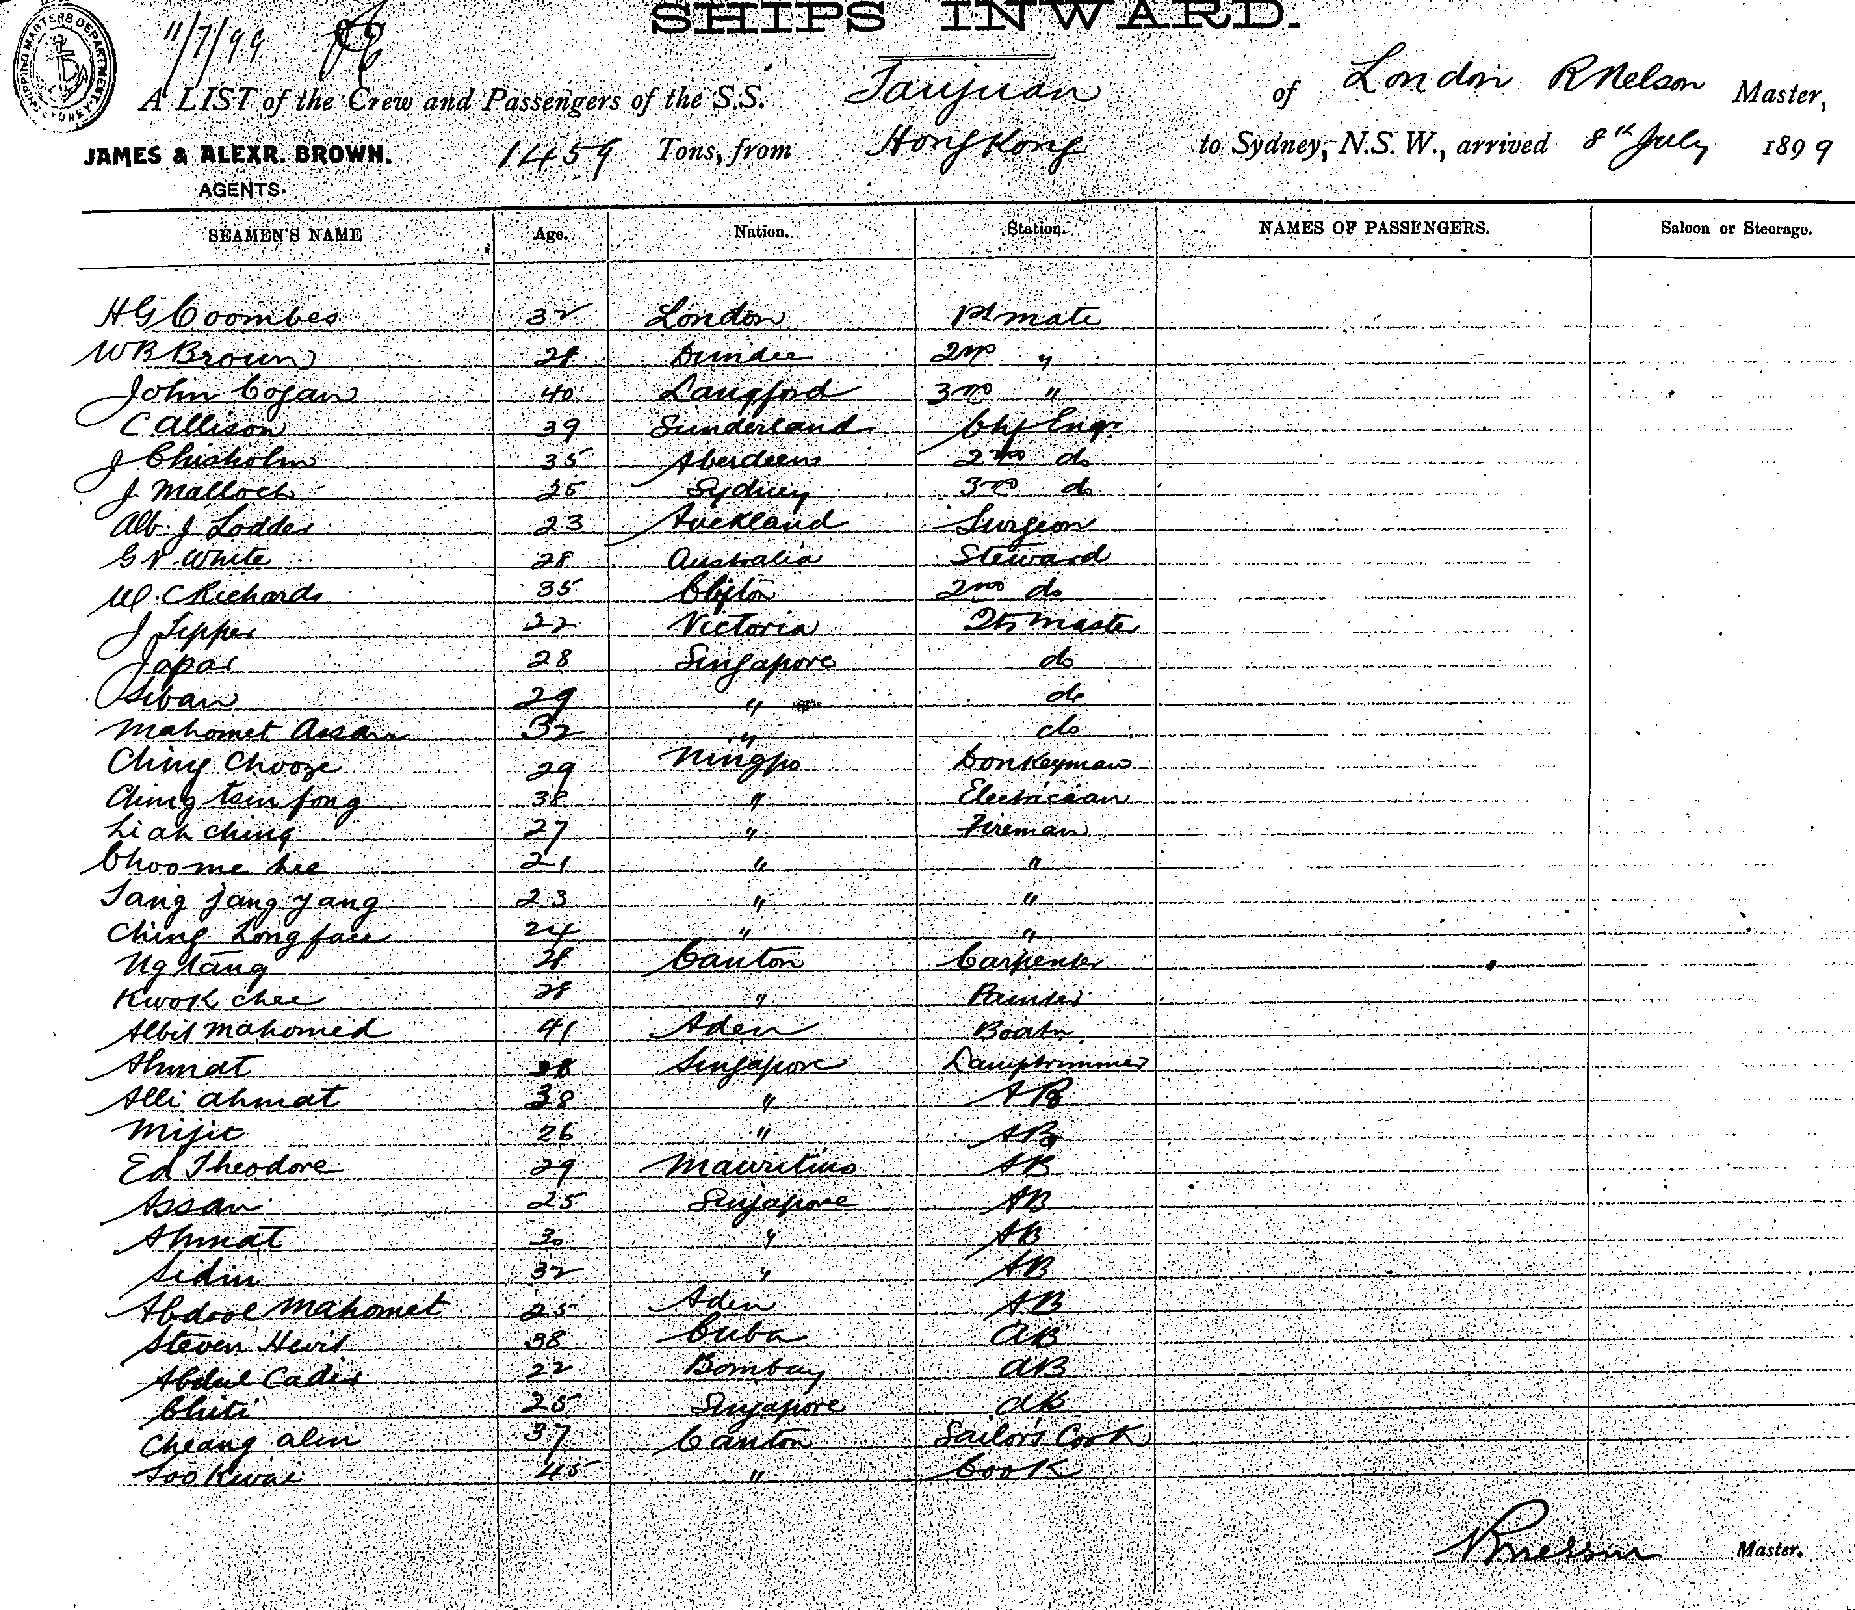 SHIPS INWARD.
11/7/99
A LIST of the Crew and Passengers of the S.S. Taiyuan of London R Nelson Master,
JAMES & ALEXR. BROWN. 1459 Tons, from Hong Kong to Sydney, N.S.W., arrived 8th July 1899
AGENTS.
SEAMEN'S NAME Age. Nation. Station. NAMES OF PASSENGERS. Saloon or Steerage.
H G Coombes 32 London 1st mate
W B Brown 28 Dundee 2nd "
John Cogan 40 Langford 3rd "
C Allison 39 Sunderland Chf Engr
J Chisholm 35 Aberdeen 2nd do
J Malloch 25 Sydney 3rd do
Alb. J Loddes 23 Auckland Surgeon
G V White 28 Australia Steward
W. C Richards 35 Clifton 2nd do
J Tepper 22 Victoria Qtr Master
Japar 28 Singapore do
Siban 29 " do
Mahomet Assan 32 " do
Ching Chooze 29 Ningpo Donkeyman
Ching tsin fong 38 " Electrician
Li ah Ching 27 " Fireman
Choo me hee 21 " "
Tang Jang Yang 23 " "
Ching Long faie 24 " "
Ng Tang 28 Canton Carpenter
Kwok Chee 28 " Painter
Albit Mahomed 41 Aden Boatn
Ahmat 38 Singapore Lamptrimmer
Alli Ahmat 38 " AB
Mijit 26 " AB
Ed Theodore 29 Mauritius AB
Assan 25 Singapore AB
Ahmat 30 " AB
Sidin 32 " AB
Abdool Mahomet 25 Aden AB
Steven Hevil 38 Cuba AB
Abdul Cadir 22 Bombay AB
Chiti 25 Singapore AB
Cheang Alin 37 Canton Sailor's Cook
Soo Kwai 45 " Cook
R Nelson Master.